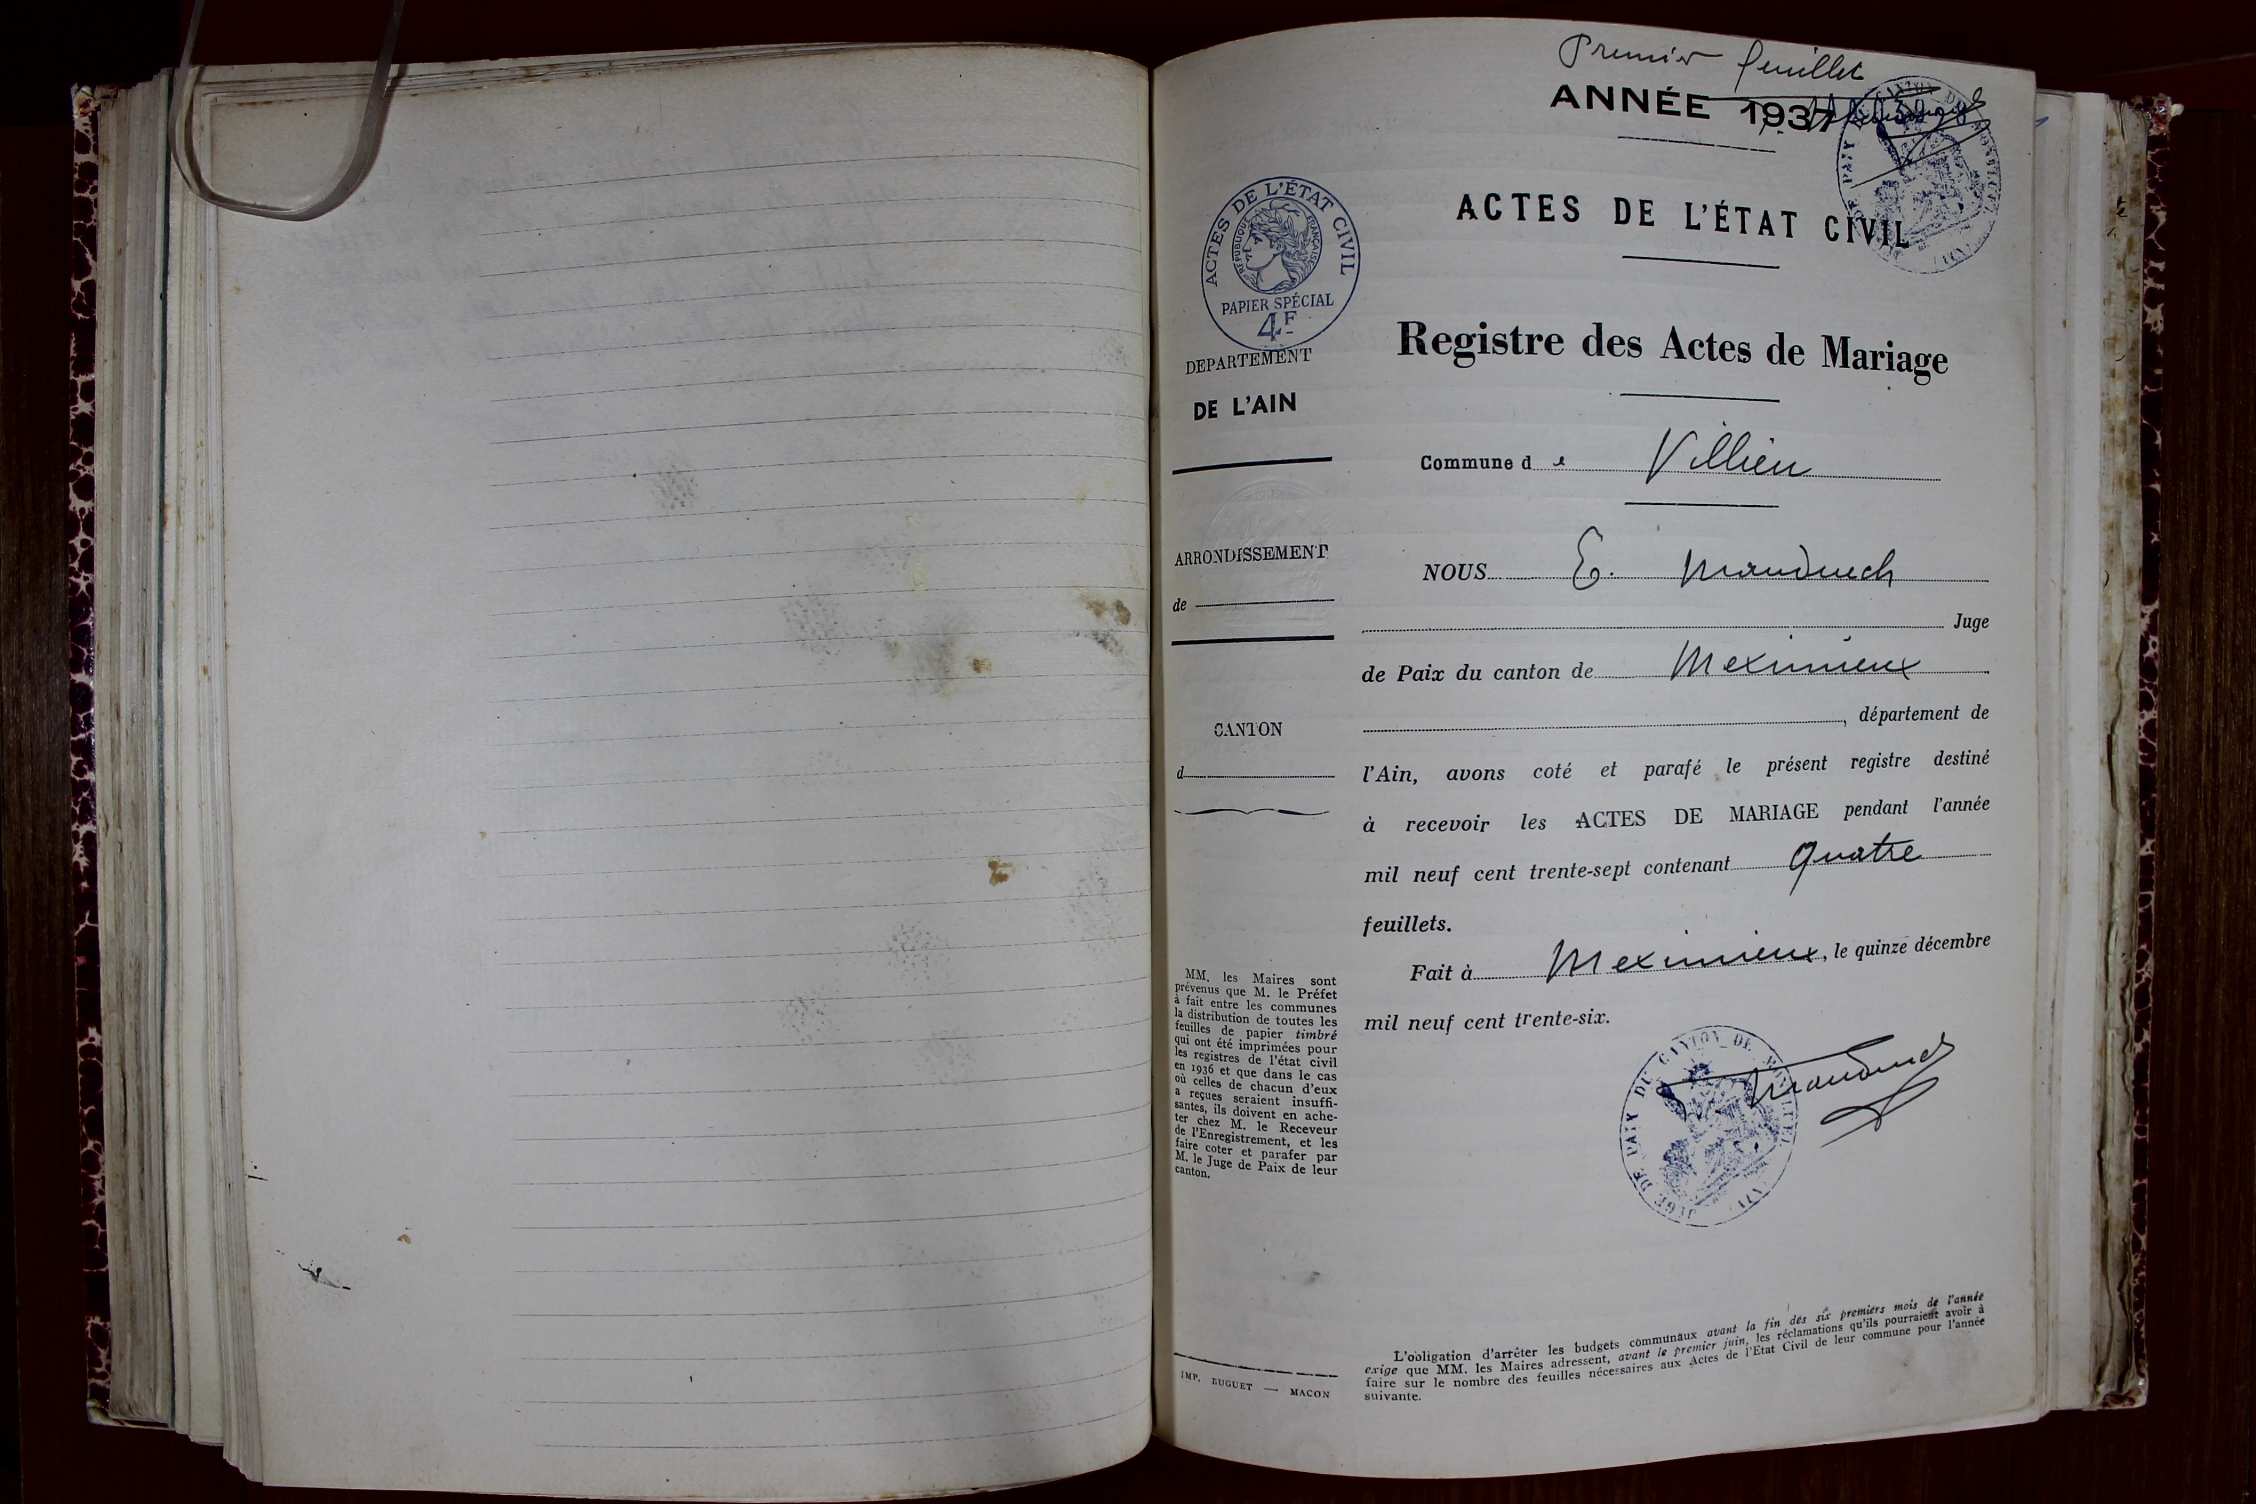 Premier feuillet
ANNÉE 1937
ACTES DE L'ÉTAT CIVIL
ACTES DE L'ÉTAT CIVIL
RÉPUBLIQUE FRANÇAISE
PAPIER SPÉCIAL
4F
DÉPARTEMENT
DE L'AIN
ARRONDISSEMENT
de
CANTON
d
MM. les Maires sont
prévenus que M. le Préfet
à fait entre les communes
la distribution de toutes les
feuilles de papier timbré
qui ont été imprimées pour
les registres de l'état civil
en 1936 et que dans le cas
où celles de chacun d'eux
a reçues seraient insuffi-
santes, ils doivent en ache-
ter chez M. le Receveur
de l'Enregistrement, et les
faire coter et parafer par
M. le Juge de Paix de leur
canton.
IMP. BUGUET — MACON
Registre des Actes de Mariage
Commune de Villieu
NOUS E. Mauduech
Juge
de Paix du canton de Meximieux
, département de
l'Ain, avons coté et parafé le présent registre destiné
à recevoir les ACTES DE MARIAGE pendant l'année
mil neuf cent trente-sept contenant quatre
feuillets.
Fait à Meximieux, le quinze décembre
mil neuf cent trente-six.
JUGE DE PAIX DU CANTON DE MONTLUEL (AIN)
Mauduech
L'obligation d'arrêter les budgets communaux avant la fin des six premiers mois de l'année
exige que MM. les Maires adressent, avant le premier juin, les réclamations qu'ils pourraient avoir à
faire sur le nombre des feuilles nécessaires aux Actes de l'Etat Civil de leur commune pour l'année
suivante.